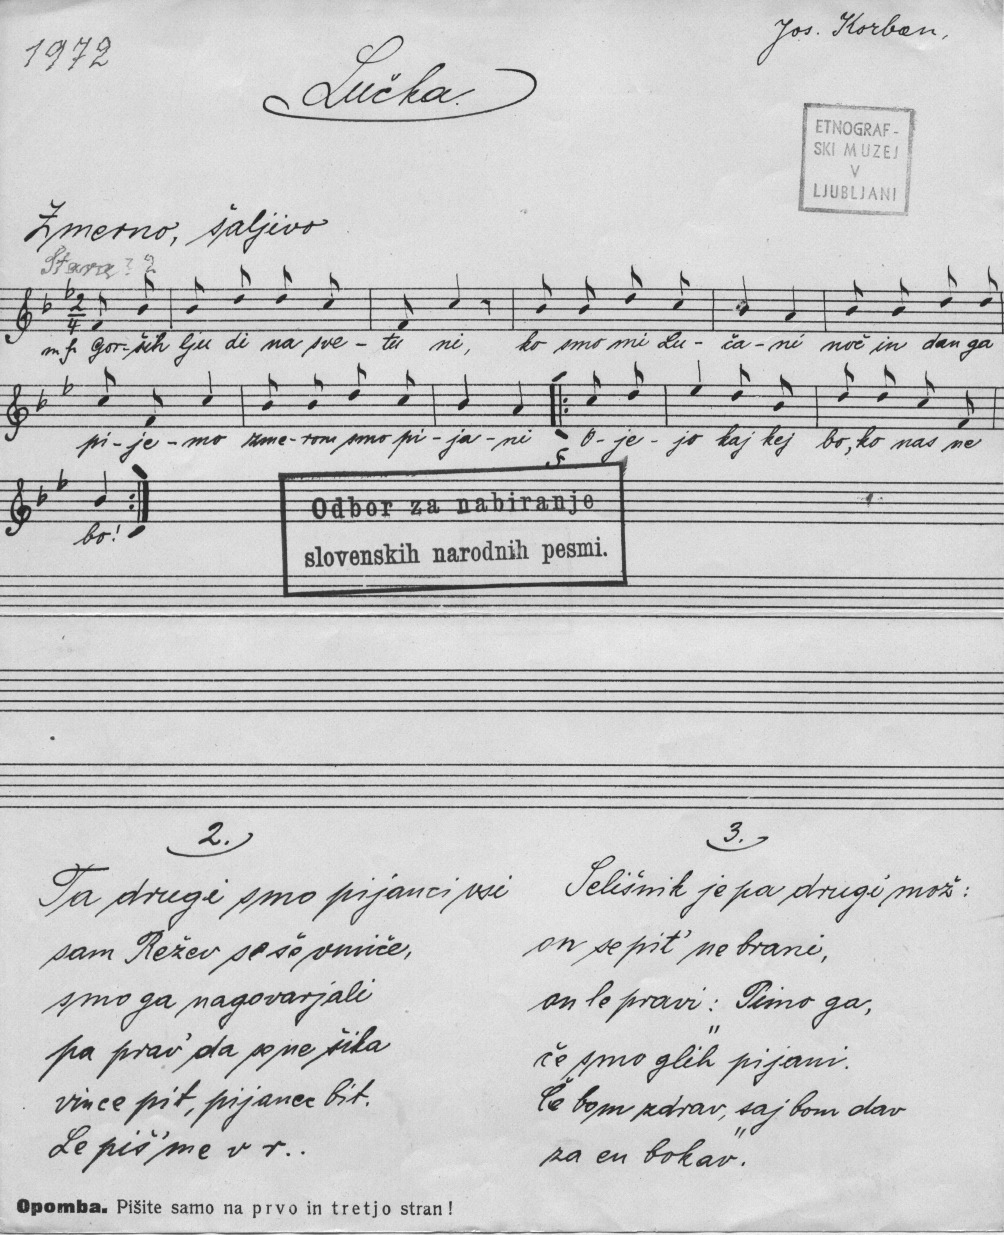 1972
Jos. Korban,
Lučka.
ETNOGRAF-
SKI MUZEJ
V
LJUBLJANI
Zmerno, šaljivo
Stara?
2
4
mf Gor-ših lju di na sve - tu ni, ko smo mi Lu - ča - ni noč in dan ga
pi - je - mo zme - rom smo pi - ja - ni O - je - jo kaj kej bo, ko nas ne
bo!
Odbor za nabiranje
slovenskih narodnih pesmi.
2.
Ta drugi smo pijanci vsi
sam Režev se še vmiče,
smo ga nagovarjali
pa prav' da se ne šika
vince pit, pijanec bit.
Le piš' me v r..
3.
Selišnik je pa drugi mož:
on se pit' ne brani,
on le pravi: Pimo ga,
če smo glih pijani.
Če bom zdrav, saj bom dav
za en bokav."
Opomba. Pišite samo na prvo in tretjo stran!